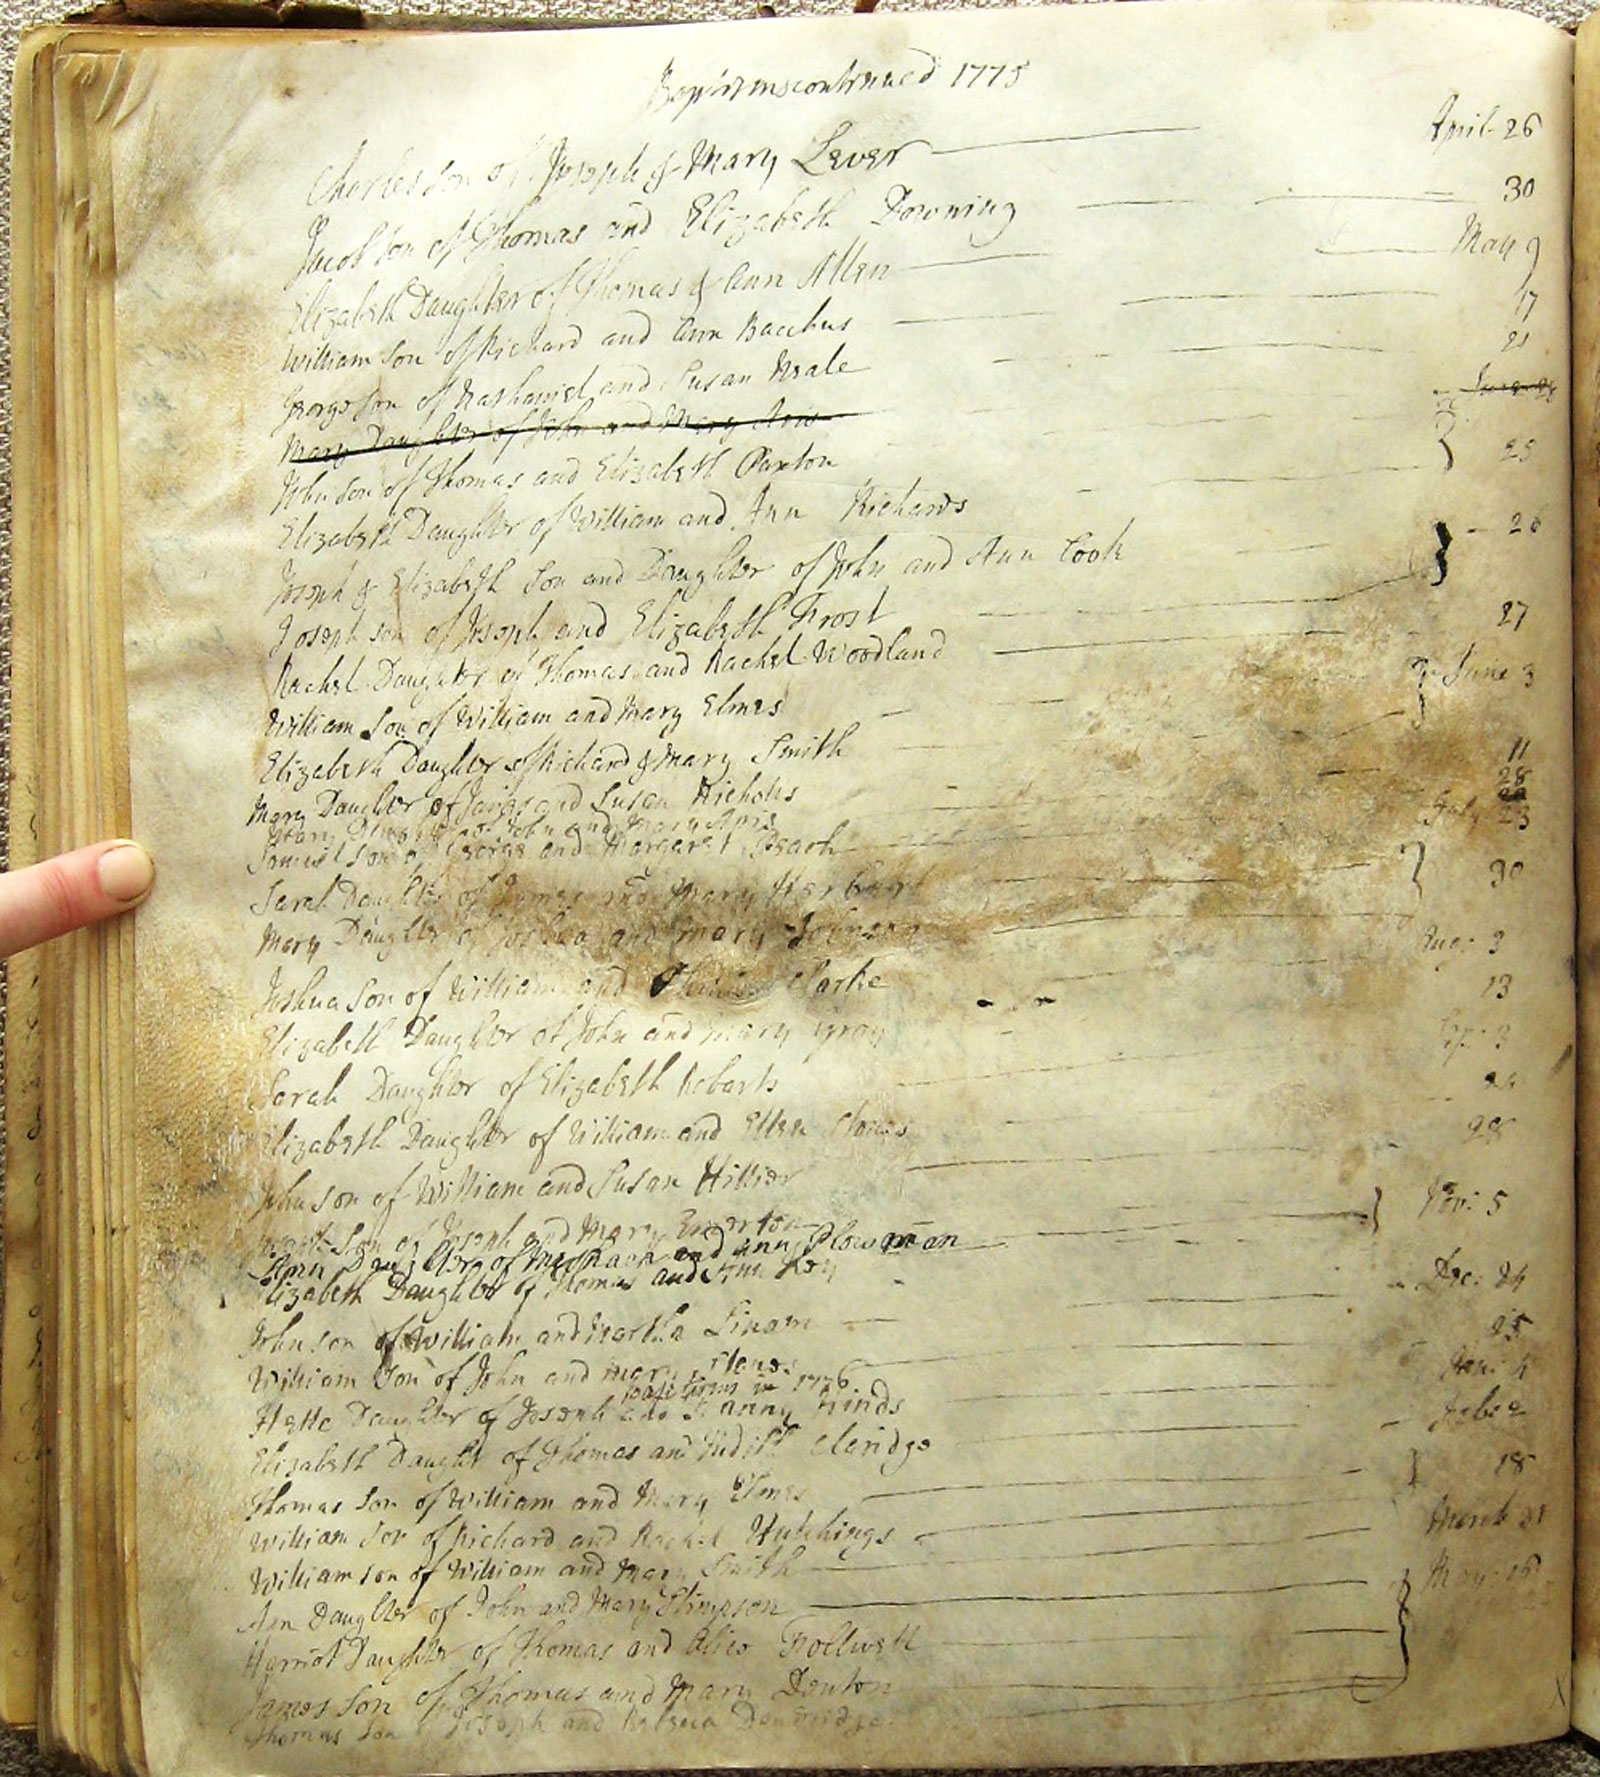 Baptisms continued 1775
Charles son of Joseph & Mary Lever April 26
Jacob son of Thomas and Elizabeth Downing 30
Elizabeth Daughter of Thomas & Ann Allen May 9
William Son of Richard and Ann Bacchus 17
George Son of Nathaniel and Susan Neale 21
Mary Daughter of John and Mary
John Son of Thomas and Elizabeth Paxton 25
Elizabeth Daughter of William and Ann Richards
Joseph & Elizabeth Son and Daughter of John and Ann Cook 26
Joseph son of Joseph and Elizabeth Frost
Rachel Daughter of Thomas and Rachel Woodland 27
William Son of William and Mary Elmes June 3
Elizabeth Daughter of Richard & Mary Smith
Mary Daughter of James and Susan Nichols 11
Mary Daughter of John and Mary 28
Samuel Son of George and Margaret July 23
Sarah Daughter of James and Mary Herbert 30
Mary Daughter of Joshua and Mary Johnson
Joshua Son of William and Clarke Aug: 3
Elizabeth Daughter of John and Mary Gray 13
Sarah Daughter of Elizabeth Robarts Sep: 3
Elizabeth Daughter of William and Ellen 24
John son of William and Susan Hillier 28
Son of Joseph and Mary Emerton Nov: 5
Ann Daughter of and Ann Plowman
Elizabeth Daughter of Thomas and Ann Key
John son of William and Martha Dec: 24
William Son of John and Mary 25
Baptisms in 1776
Daughter of Joseph and Fanny Hinds
Elizabeth Daughter of Thomas and Judith Claridge Feb: 2
Thomas Son of William and Mary Elmes 18
William Son of Richard and Rachel Hutchings
William son of William and Mary Smith March 31
Ann Daughter of John and Mary Slimpson May 16
Harriot Daughter of Thomas and Alice Follwell
James Son of Thomas and Mary Denton
Thomas Son of Joseph and